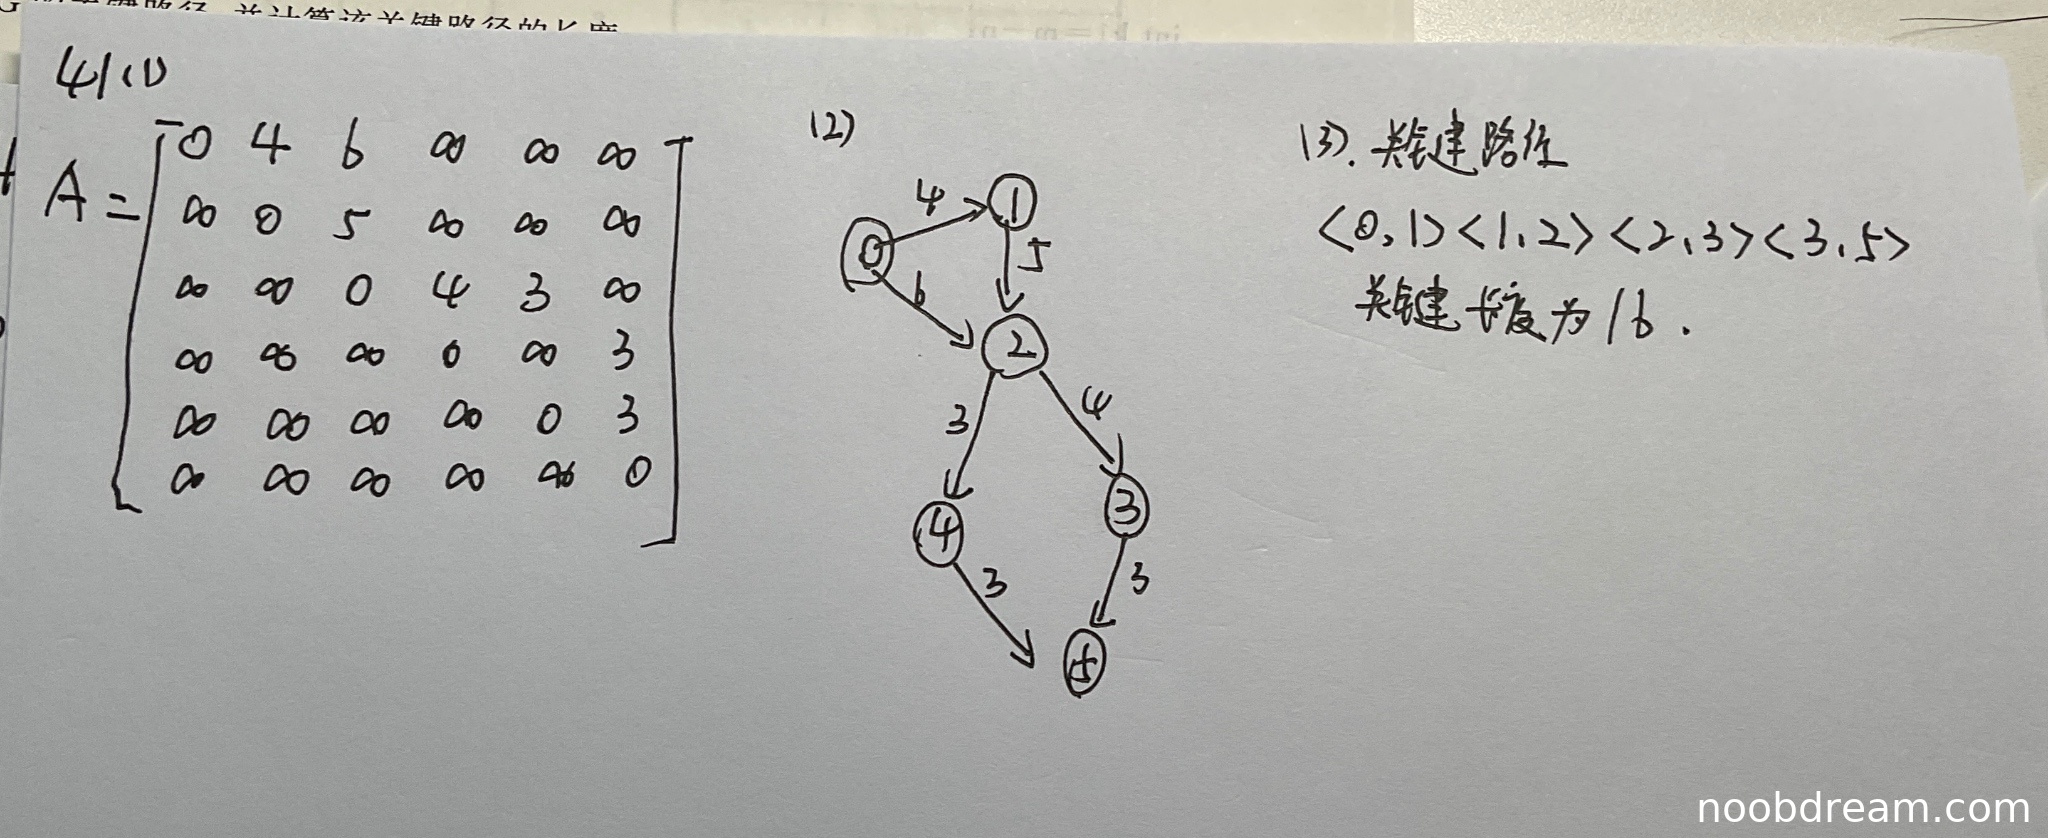 并计算该关键路径的长度
41(1)
A =
0 4 6 ∞ ∞ ∞
∞ 0 5 ∞ ∞ ∞
∞ ∞ 0 4 3 ∞
∞ ∞ ∞ 0 ∞ 3
∞ ∞ ∞ ∞ 0 3
∞ ∞ ∞ ∞ ∞ 0
(2)
4
1
0
5
6
2
3
4
4
3
3
3
5
(3). 关键路径
<0,1><1,2><2,3><3,5>
关键长度为16.
noobdream.com